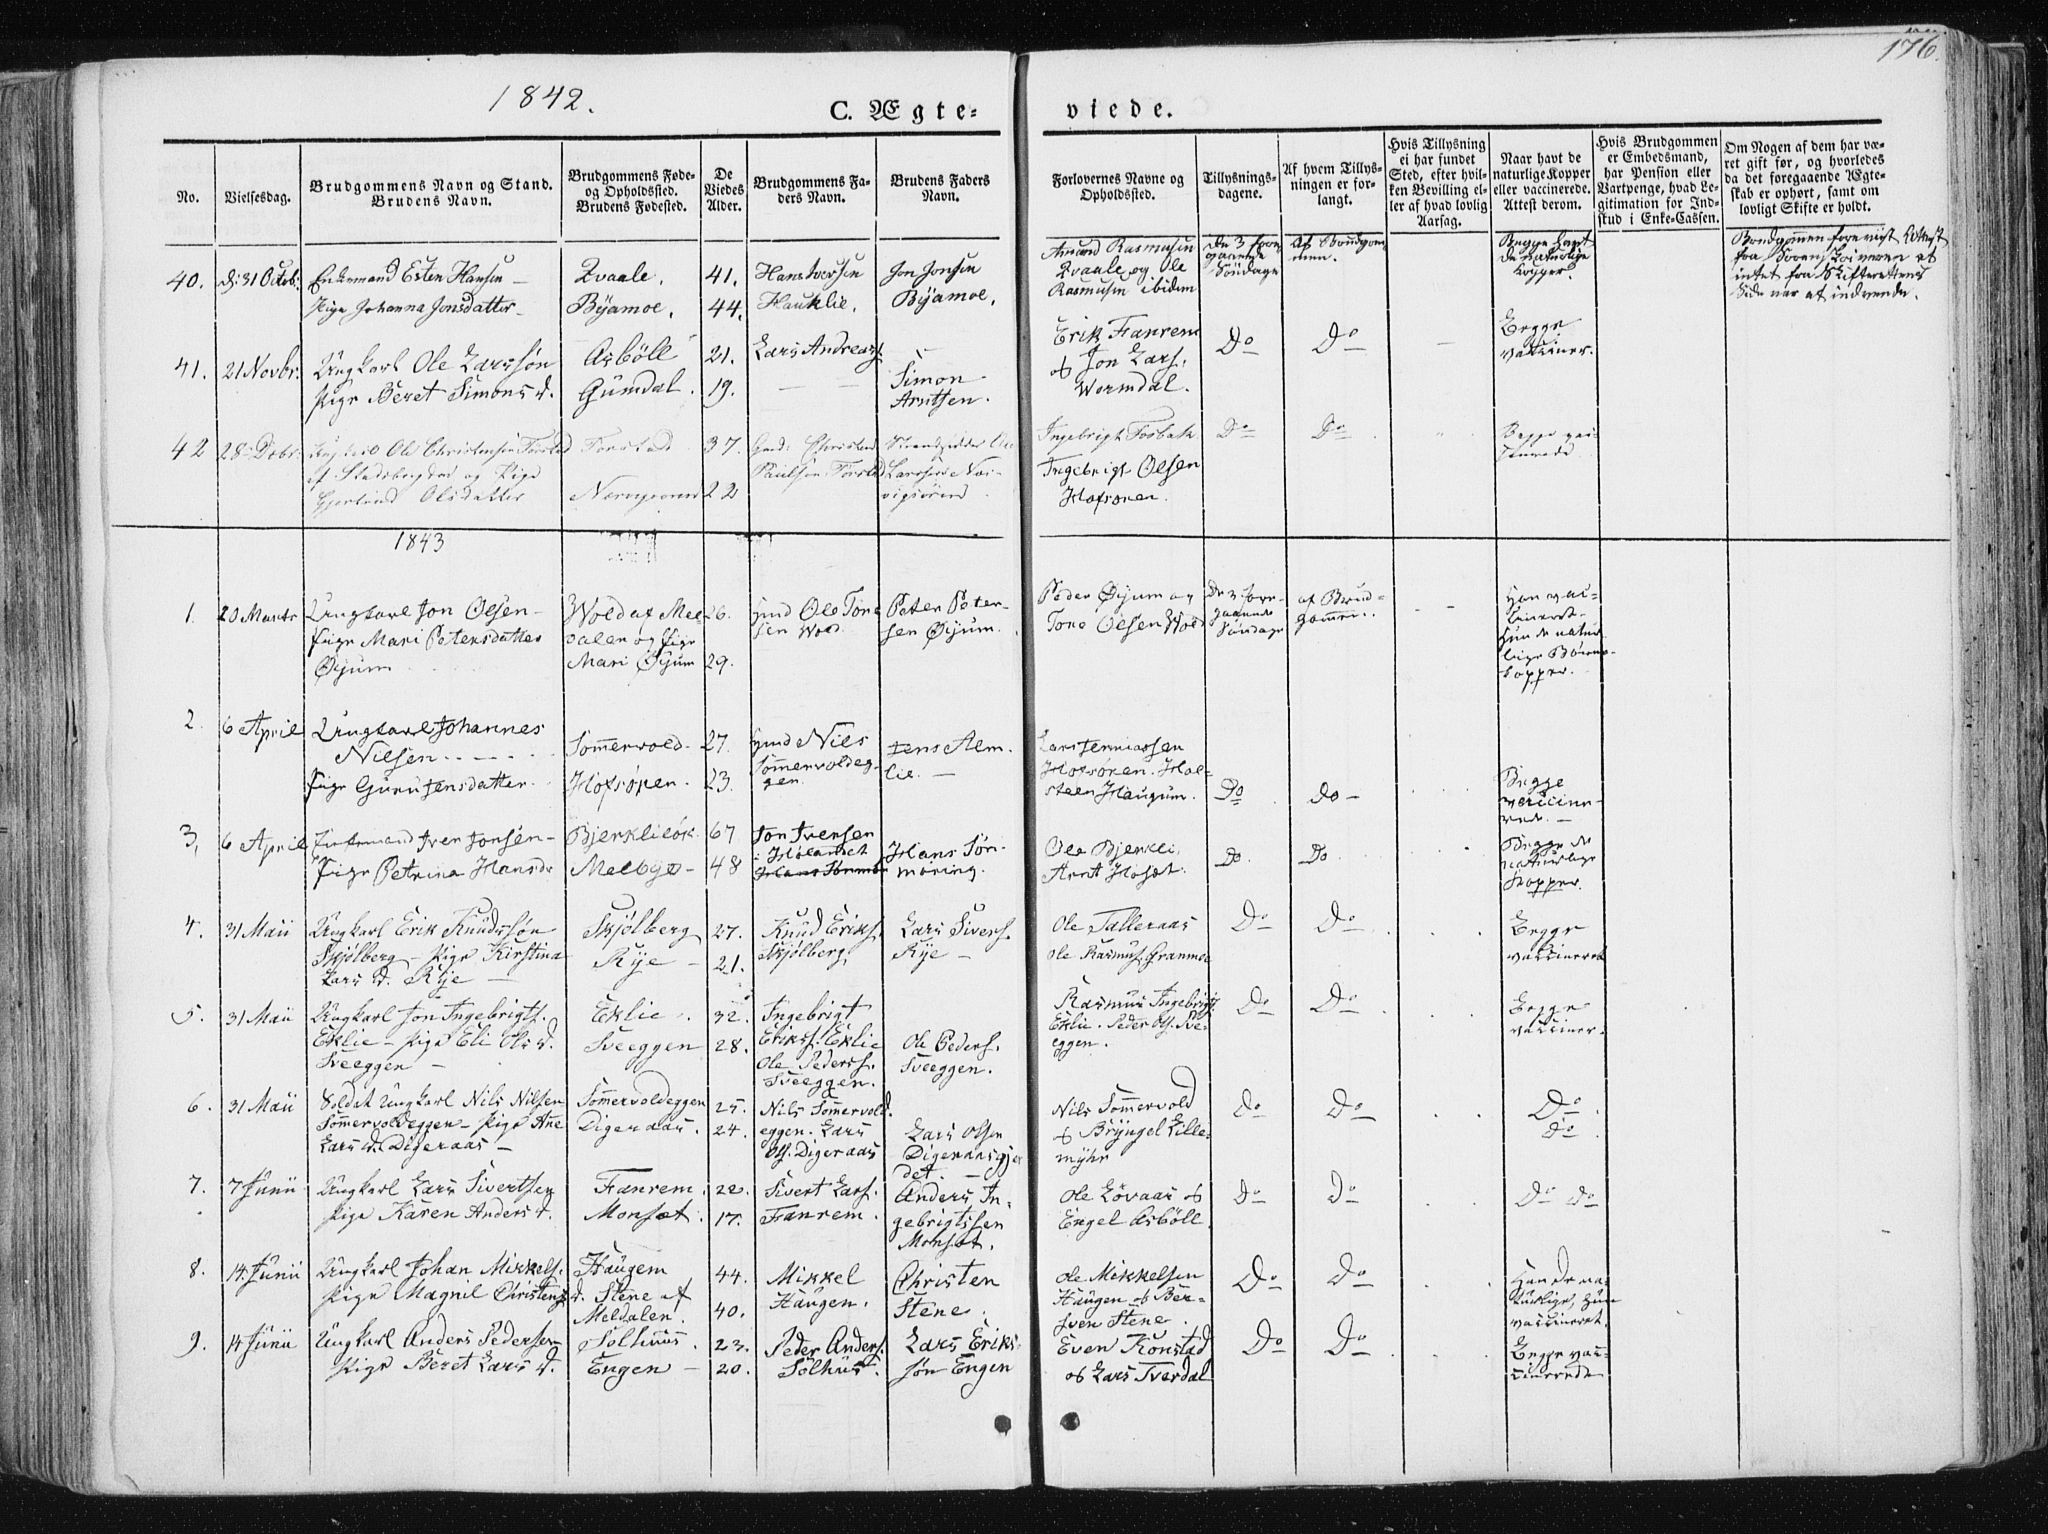 176.
1842.
C. Ægte-
viede.
No.
Vielsesdag.
Brudgommens Navn og Stand.
Brudens Navn.
Brudgommens Føde-
og Opholdssted.
Brudens Fødested.
De
Viedes
Alder.
Brudgommens Fa-
ders Navn.
Brudens Faders
Navn.
Forlovernes Navne og
Opholdssted.
Tillysnings-
dagene.
Af hvem Tillys-
ningen er for-
langt.
Hvis Tillysning
ei har fundet
Sted, efter hvil-
ken Bevilling el-
ler af hvad lovlig
Aarsag.
Naar havt de
naturlige Kopper
eller vaccinerede.
Attest derom.
Hvis Brudgommen
er Embedsmand,
har Pension eller
Vartpenge, hvad Le-
gitimation for Ind-
skud i Enke-Cassen.
Om Nogen af dem har væ-
ret gift før, og hvorledes
da det foregaaende Ægte-
skab er ophørt, samt om
lovligt Skifte er holdt.
40.
d: 31 Octob:
Enkemand Esten Hansen
Pige Johanna Jonsdatter
Qvaale.
Byamoe.
41.
44.
Hans Iversen
Hauklie.
Jon Jonsen
Byamoe.
Amund Rasmusen
Qvaale og Ole
Rasmusen ibidem
De 3 fore
gaaende
Søndage
Af Brudgom
men.
Begge havt
de naturlige
kopper.
41.
21 Novbr.
Ungkarl Ole Larssøn
Pige Beret Simons d.
Asböll
Gumdal.
21.
19.
Lars Andreass.
Simon
Arntsen.
Erik Fanrem
og Jon Lars.
Wormdal.
Do
Do
Begge
vacciner.
42
28 Debr.
Ungkarl Ole Christensen Forstad
af Stadsbygden og Pige
Gjertrud Olsdatter
Forstad
37.
22
Gmd: Christen
Paulsen Forstad
Strandsidder Ole
Larssen
Ingebrigt Fosbak
Ingebrigt Olsen
Hofsønen.
Do
Do
Begge vac-
cinerede
1843
1.
20 Marts
Ungkarl Jon Olsen
Pige Mari Petersdatter
Øijum
Wold af Mel
dalen og Pige
Mari Øijum
26.
29.
Gmd Ole Tone
sen Wold
Peter Peter-
sen Øijum.
Peder Øijum og
Tone Olsen Wold
De 3 fore-
gaaende
Søndage
af Brud-
gommen.
Han vac-
cineret
Hun de natur
lige Børne-
kopper.
2.
6 April
Ungkarl Johannes
Nielsen
Pige Guru Jensdatter
Sommervold
Hofsønen.
27.
23.
Gmd Niels
Sommervoldeg-
gen
Jens Alm-
lie.
Lars Jemiassen
Hofsönen. Hol-
steen Haugum.
Do
Do
Begge
vaccine-
rede.
3.
6 April
Enkemand Iver Jonsen
Pige Petrina Hansdr
Bjerklieøk
Melbye
67
48
Jon Iversen
i Hølandet
Hans Sør-
moring.
Ole Bjerkli
Arnt Hoset.
Do.
Do
Begge de
naturlige
Kopper.
4.
31 Maii
Ungkarl Erik Knudssøn
Skjølberg - Pige Kirstina
Lars d. Rye
Skjølberg
Rye
27.
21.
Knud Eriks.
Skjølberg
Lars Sivers.
Rye
Ole Talleraas
Ole Rasmus. Granmoe
Do
Do
Begge
vaccineret
5.
31 Maii
Ungkarl Jon Ingebrigts.
Eklie - Pige Eli Ols d.
Sveeggen
Eklie.
Sveeggen
32.
28.
Ingebrigt
Eriks. Eklie
Ole Peders.
Sveeggen.
Ole Peders.
Sveeggen.
Rasmus Ingebrigts.
Eklie. Peder Ols. Sve-
eggen.
Do
Do
Begge
vacciner.
6.
31 Maii
Soldat Ungkarl Nils Nilsen
Sommervoldeggen - Pige Ane
Lars d. Digeraas
Sommervoldeggen
Digeraas.
25.
24.
Nils Sommervold-
eggen. Lars
Ols. Digeraas
Lars Olsen
Digeraasgjer
det.
Nils Sommervold
og Bryngel Lille-
myhr
Do
Do
Do
do
7.
7 Junii
Ungkarl Lars Sivertsen
Pige Karen Anders d.
Fanrem.
Monset.
22.
17.
Sivert Lars.
Fanrem.
Anders In-
gebrigtsen
Monset.
Ole Lövaas og
Engel Asböll.
Do
Do
Do Do
8.
14 Junii
Ungkarl Johan Mikkels.
Pige Magnil Christens d.
Haugen
Stene af
Meldalen.
44.
40.
Mikkel
Haugen.
Christen
Stene.
Ole Mikkelsen
Haugen og Ber-
sven Stene.
Do
Do
Han de na-
turlige, Hun
vaccineret.
9.
14 Junii
Ungkarl Anders Pedersen
Pige Beret Lars d.
Solhuus.
Engen
23.
20.
Peder Anders.
Solhuus.
Lars Eriks-
søn Engen
Even Konstad
og Lars Tverdal
Do
Do
Begge vac-
cinerede